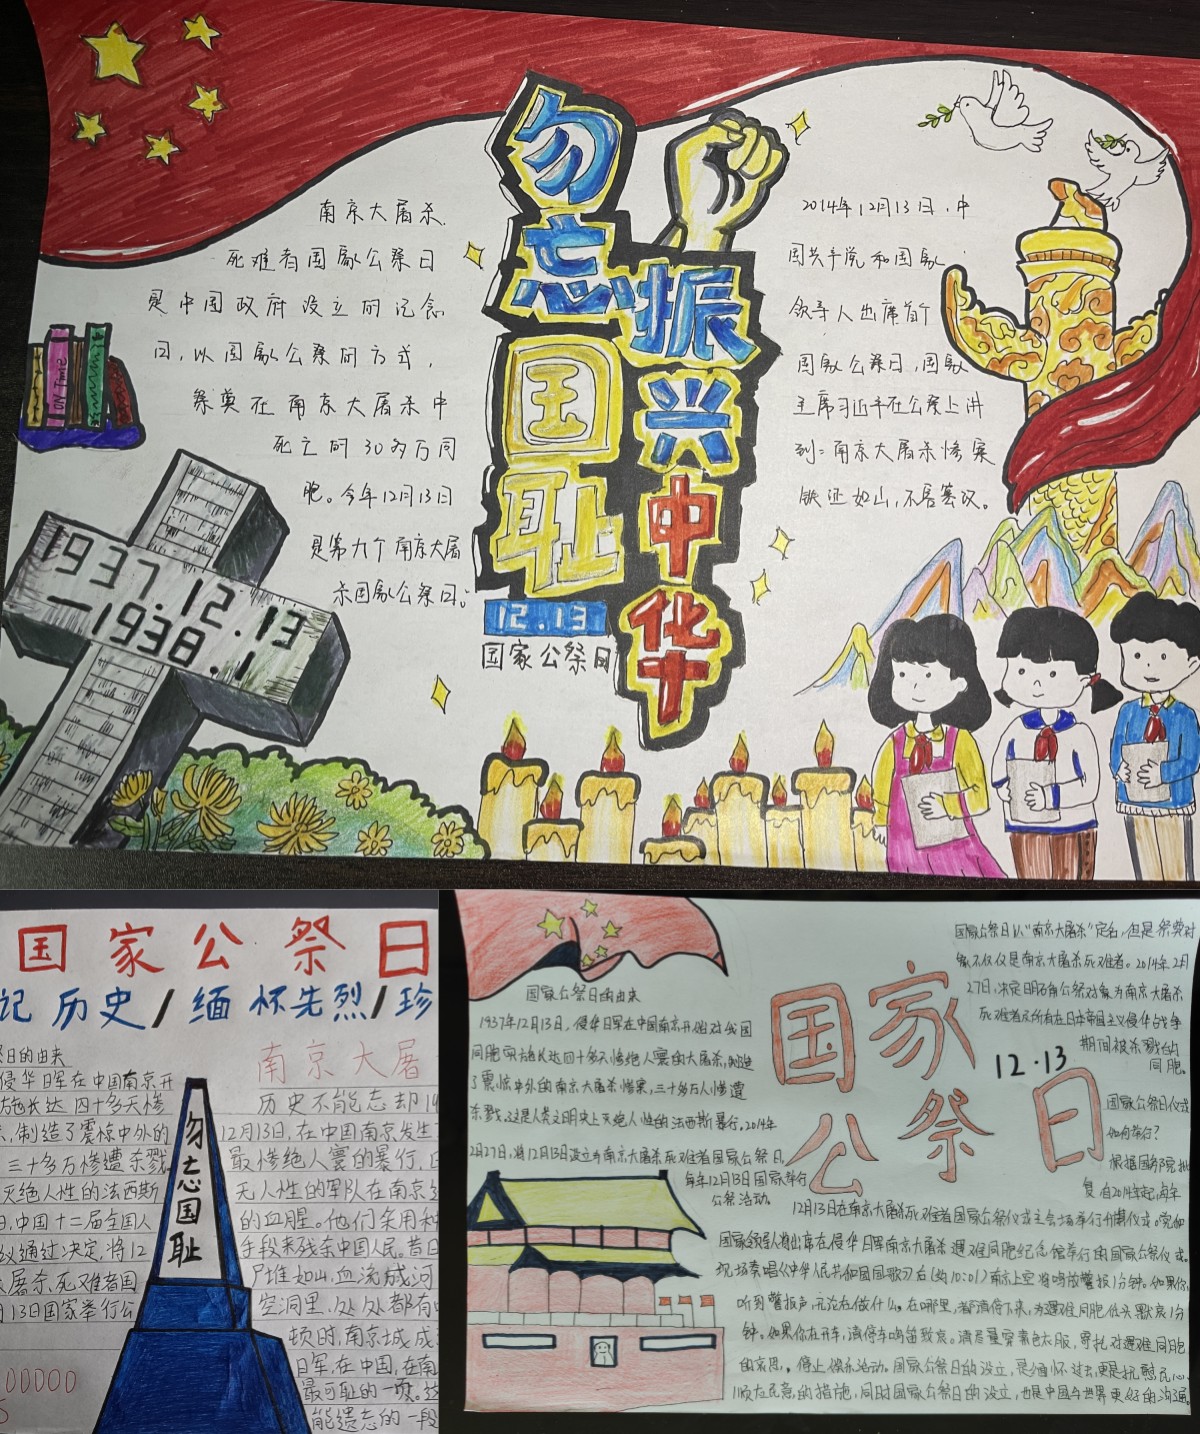 勿忘国耻
振兴中华
12.13
国家公祭日
南京大屠杀
死难者国家公祭日
是中国政府设立的纪念
日，以国家公祭的方式，
祭奠在南京大屠杀中
死亡的30多万同
胞。今年12月13日
是第九个南京大屠
杀国家公祭日。
2014年12月13日，中
国共产党和国家
领导人出席首个
国家公祭日，国家
主席习近平在公祭上讲
到：南京大屠杀惨案
铁证如山，不容篡改。
ON TIME
1937.12.13
—1938.1
国家公祭日
记历史/缅怀先烈/珍
祭日的由来
侵华日军在中国南京开
施长达四十多天惨
制造了震惊中外的
三十多万惨遭杀戮
灭绝人性的法西斯
日,中国十二届全国人
议通过决定,将12
屠杀死难者国
月13日国家举行公
00000
5
勿忘国耻
南京大屠
历史不能忘却19
12月13日,在中国南京发生
最惨绝人寰的暴行,日
无人性的军队在南京
的血腥。他们采用种
手段来残杀中国人民。昔日
尸堆如山,血流成河
空洞里,处处都有
顿时,南京城成
日军,在中国,在南
最可耻的一页。这
能遗忘的一段
国家公祭日
12.13
国家公祭日的由来
1937年12月13日，侵华日军在中国南京开始对我国
同胞实施长达四十多天惨绝人寰的大屠杀，制造
了震惊中外的南京大屠杀惨案，三十多万人惨遭
杀戮，这是人类文明史上灭绝人性的法西斯暴行。2014年
2月27日，将12月13日设立为南京大屠杀死难者国家公祭日，
每年12月13日国家举行
公祭活动。
国家公祭日以“南京大屠杀”定名，但是祭奠对
象不仅仅是南京大屠杀死难者。2014年2月
27日，决定明确公祭对象为南京大屠杀
死难者和所有在日本帝国主义侵华战争
期间被杀戮的
同胞。
国家公祭日仪式
如何举行？
根据国务院批
复自2014年起，每年
12月13日在南京大屠杀死难者国家公祭仪式主会场举行
国家领导人将出席在侵华日军南京大屠杀遇难同胞纪念馆举行的国家公祭仪式。
现场奏唱《中华人民共和国国歌》后（约10:01）南京上空将鸣放警报1分钟。如果你
听到警报声，无论在做什么。在哪里，都请停下来，为遇难同胞低头默哀1分
钟。如果你在开车，请停车鸣笛致哀。请尽量穿素色衣服，寄托对遇难同胞
的哀思。停止娱乐活动。国家公祭日的设立，是缅怀过去，更是抚慰民心、
顺应民意的措施，同时国家公祭日的设立，也是中国与世界更好的沟通。